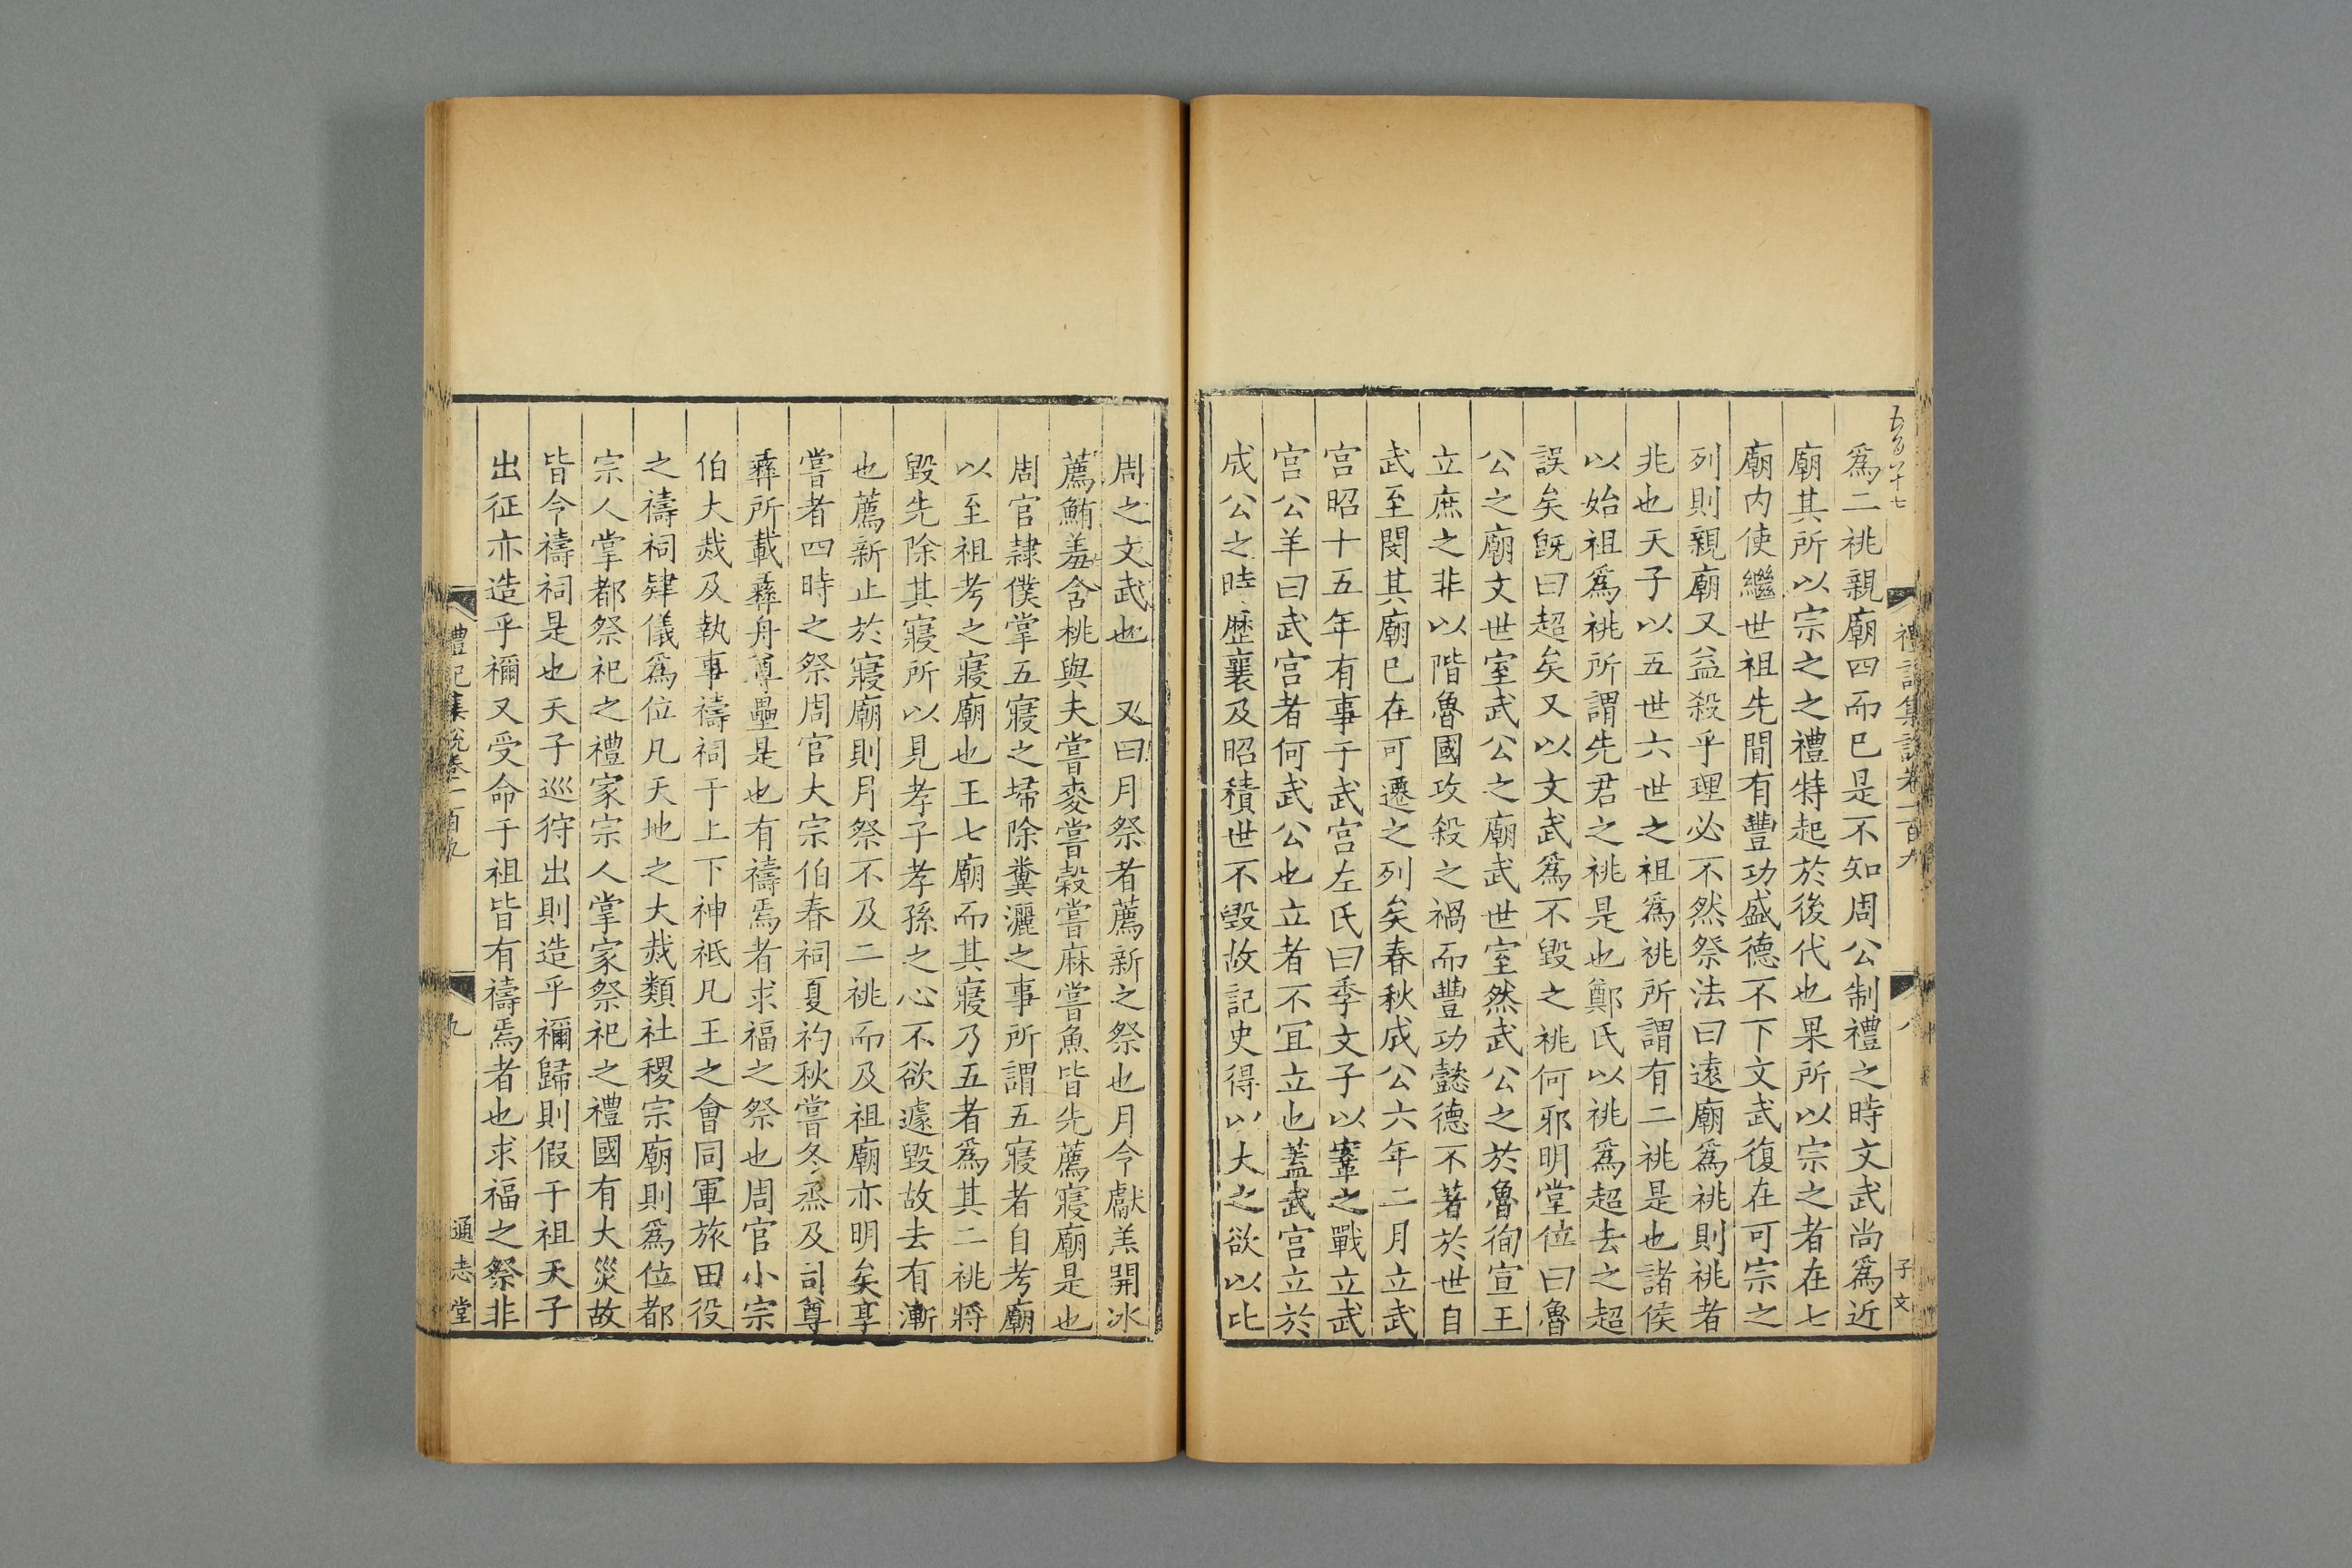 禮記集說卷一百九
八
子文
爲二祧親廟四而已是不知周公制禮之時文武尚爲近
廟其所以宗之之禮特起於後代也果所以宗之者在七
廟内使繼世祖先間有豐功盛德不下文武復在可宗之
列則親廟又益殺乎理必不然祭法曰遠廟爲祧則祧者
兆也天子以五世六世之祖爲祧所謂有二祧是也諸侯
以始祖爲祧所謂先君之祧是也鄭氏以祧爲超去之超
誤矣旣曰超矣又以文武爲不毀之祧何邪明堂位曰魯
公之廟文世室武公之廟武世室然武公之於魯徇宣王
立庶之非以階魯國攻殺之禍而豐功懿德不著於世自
武至閔其廟已在可遷之列矣春秋成公六年二月立武
宫昭十五年有事于武宫左氏曰季文子以鞌之戰立武
宫公羊曰武宫者何武公也立者不宜立也蓋武宫立於
成公之時歷襄及昭積世不毀故記史得以大之欲以比
周之文武也 又曰月祭者薦新之祭也月令獻羔開冰
薦鮪羞含桃與夫嘗麥嘗穀嘗麻嘗魚皆先薦寢廟是也
周官隷僕掌五寢之埽除糞灑之事所謂五寢者自考廟
以至祖考之寢廟也王七廟而其寢乃五者爲其二祧將
毀先除其寢所以見孝子孝孫之心不欲遽毀故去有漸
也薦新止於寢廟則月祭不及二祧而及祖廟亦明矣享
嘗者四時之祭周官大宗伯春祠夏礿秋嘗冬烝及司尊
彝所載彝舟尊罍是也有禱焉者求福之祭也周官小宗
伯大烖及執事禱祠于上下神祇凡王之會同軍旅田役
之禱祠肄儀爲位凡天地之大烖類社稷宗廟則爲位都
宗人掌都祭祀之禮家宗人掌家祭祀之禮國有大災故
皆令禱祠是也天子巡狩出則造乎禰歸則假于祖天子
出征亦造乎禰又受命于祖皆有禱焉者也求福之祭非
禮記集說卷一百九
九
通志堂